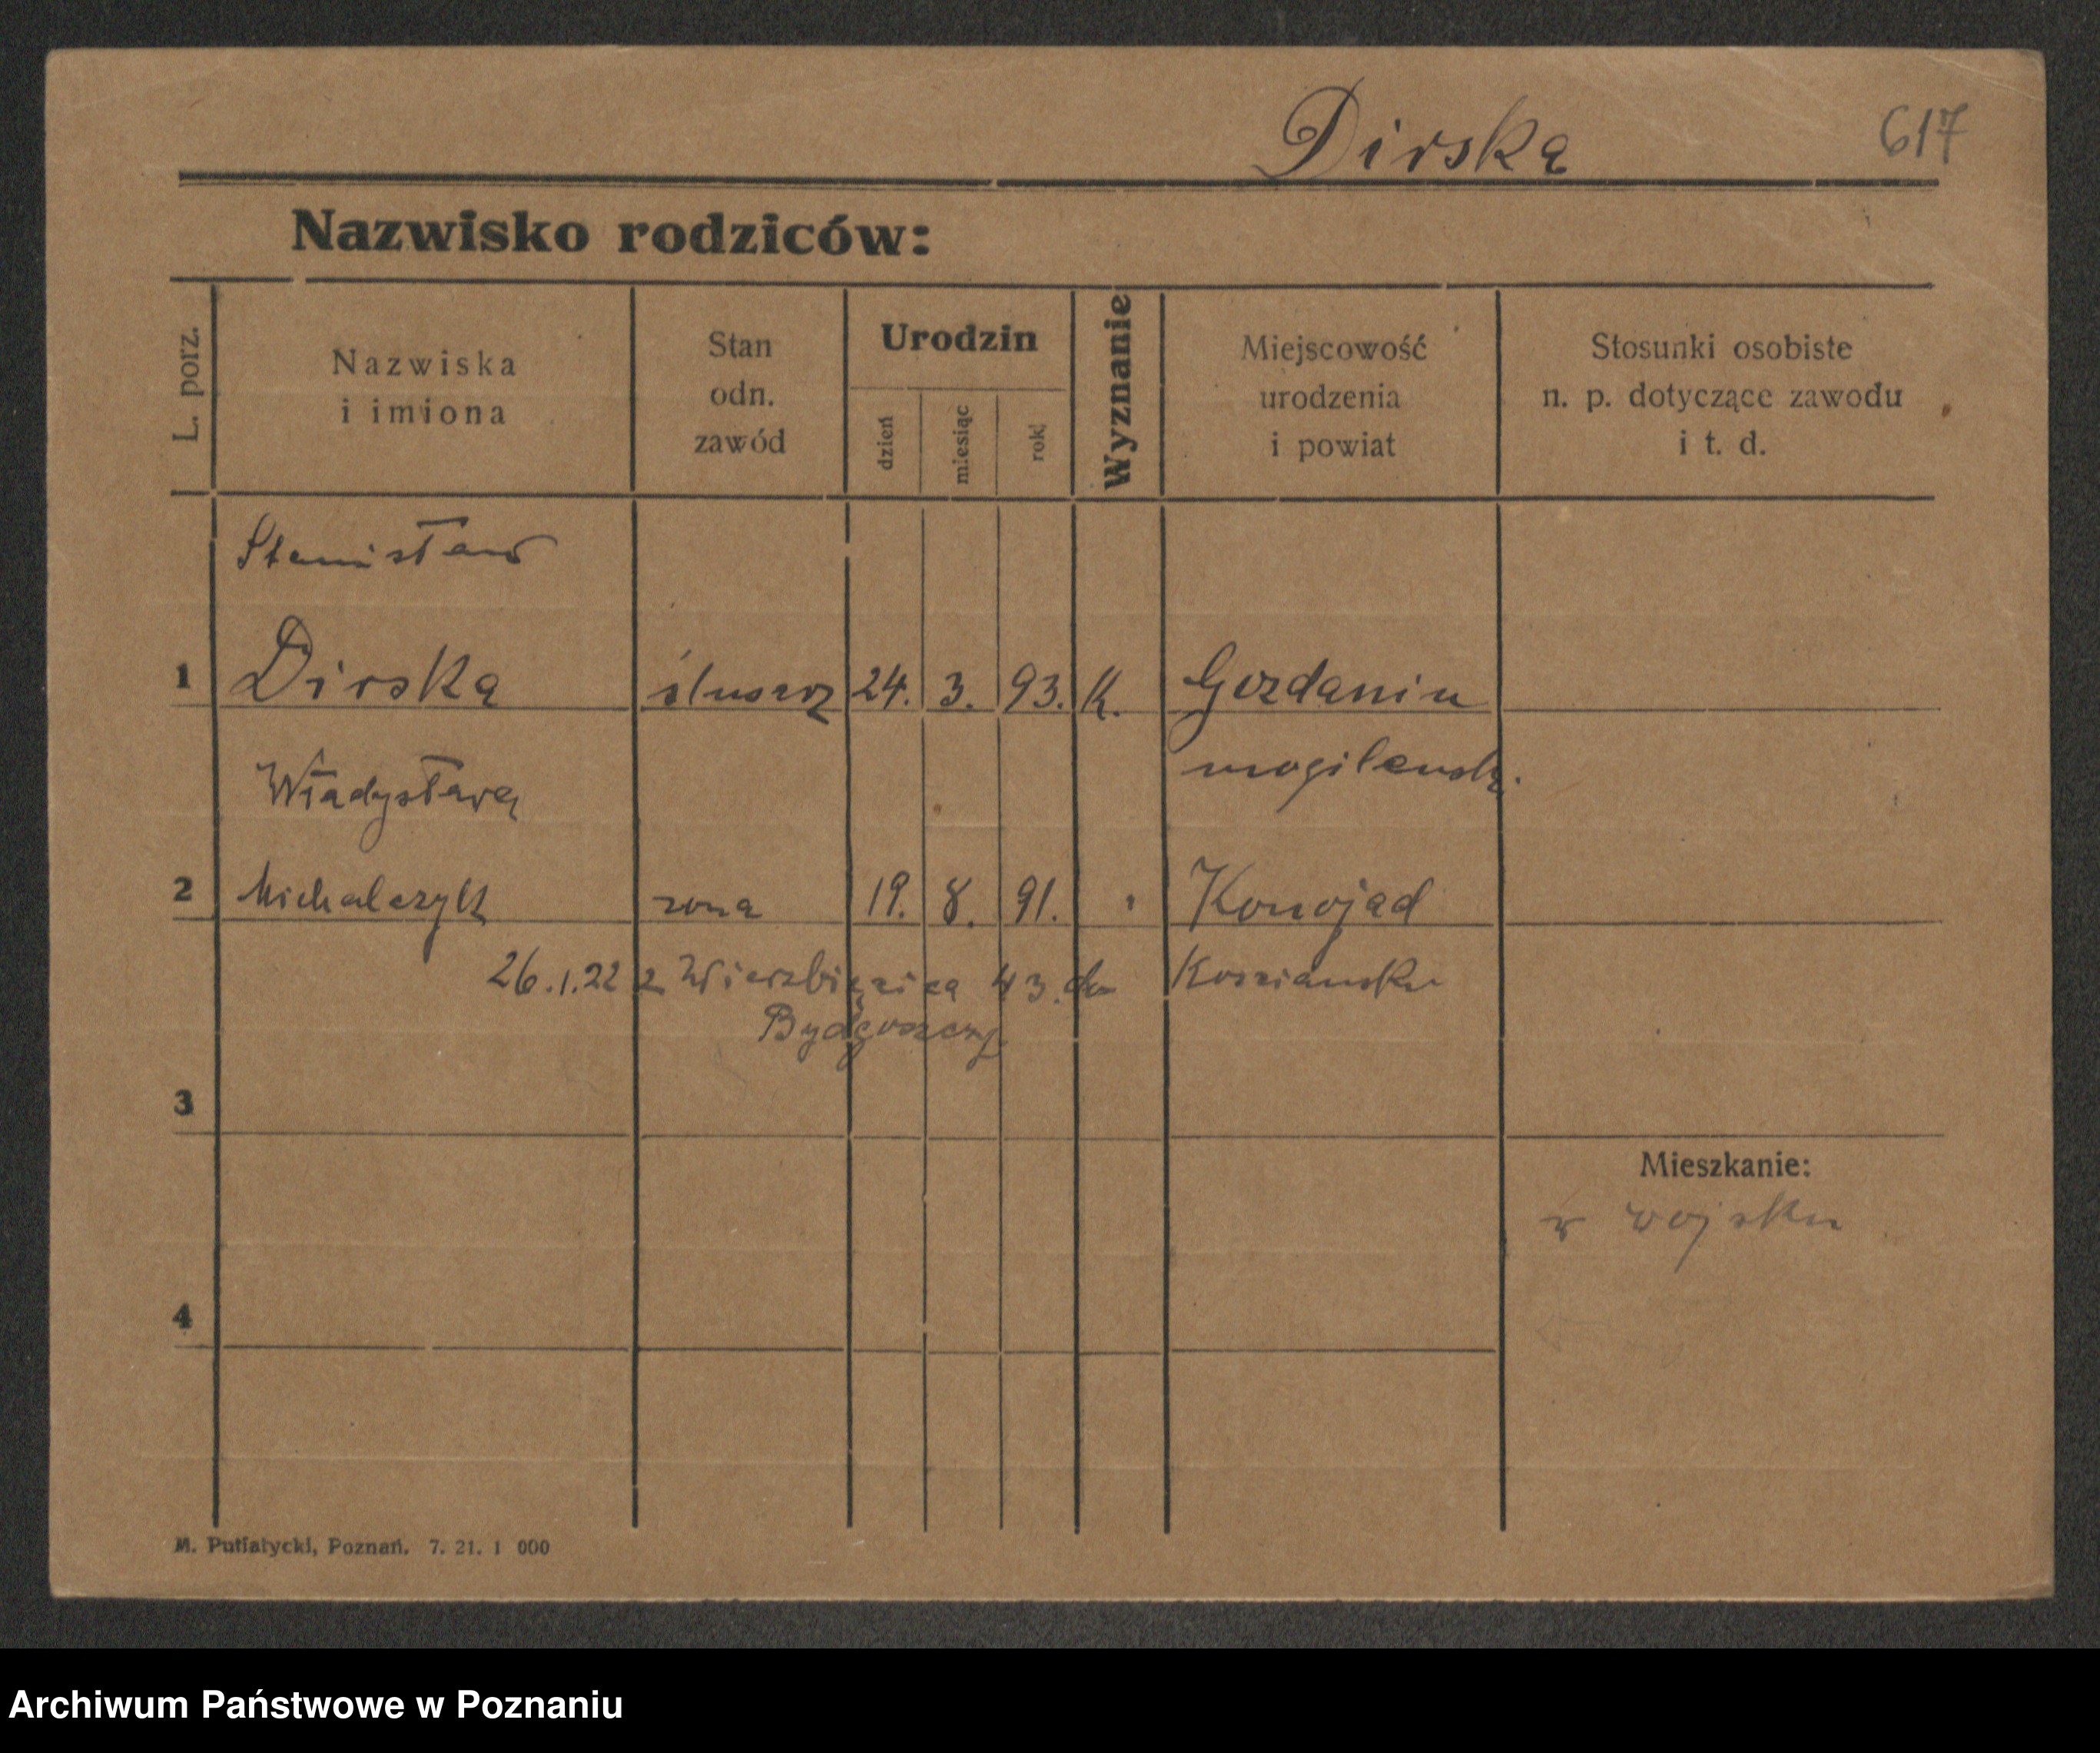 Dirska 617
Nazwisko rodziców:
L. porz.
Nazwiska
i imiona
Stan
odn.
zawód
Urodzin
dzień
miesiąc
rok
Wyznanie
Miejscowość
urodzenia
i powiat
Stosunki osobiste
n. p. dotyczące zawodu
i t. d.
Stanisław
1 Dirska ślusarz 24. 3. 93. K.
mogilensk.
Władysława
2 Michalczyk zona 19. 8. 91. " Konojad
26.1.22 z Wierzbięcica 43. do
Kosciansku
Bydgoszczy
3
Mieszkanie:
w wojsku
4
M. Putiatycki, Poznań. 7. 21. 1 000
Archiwum Państwowe w Poznaniu